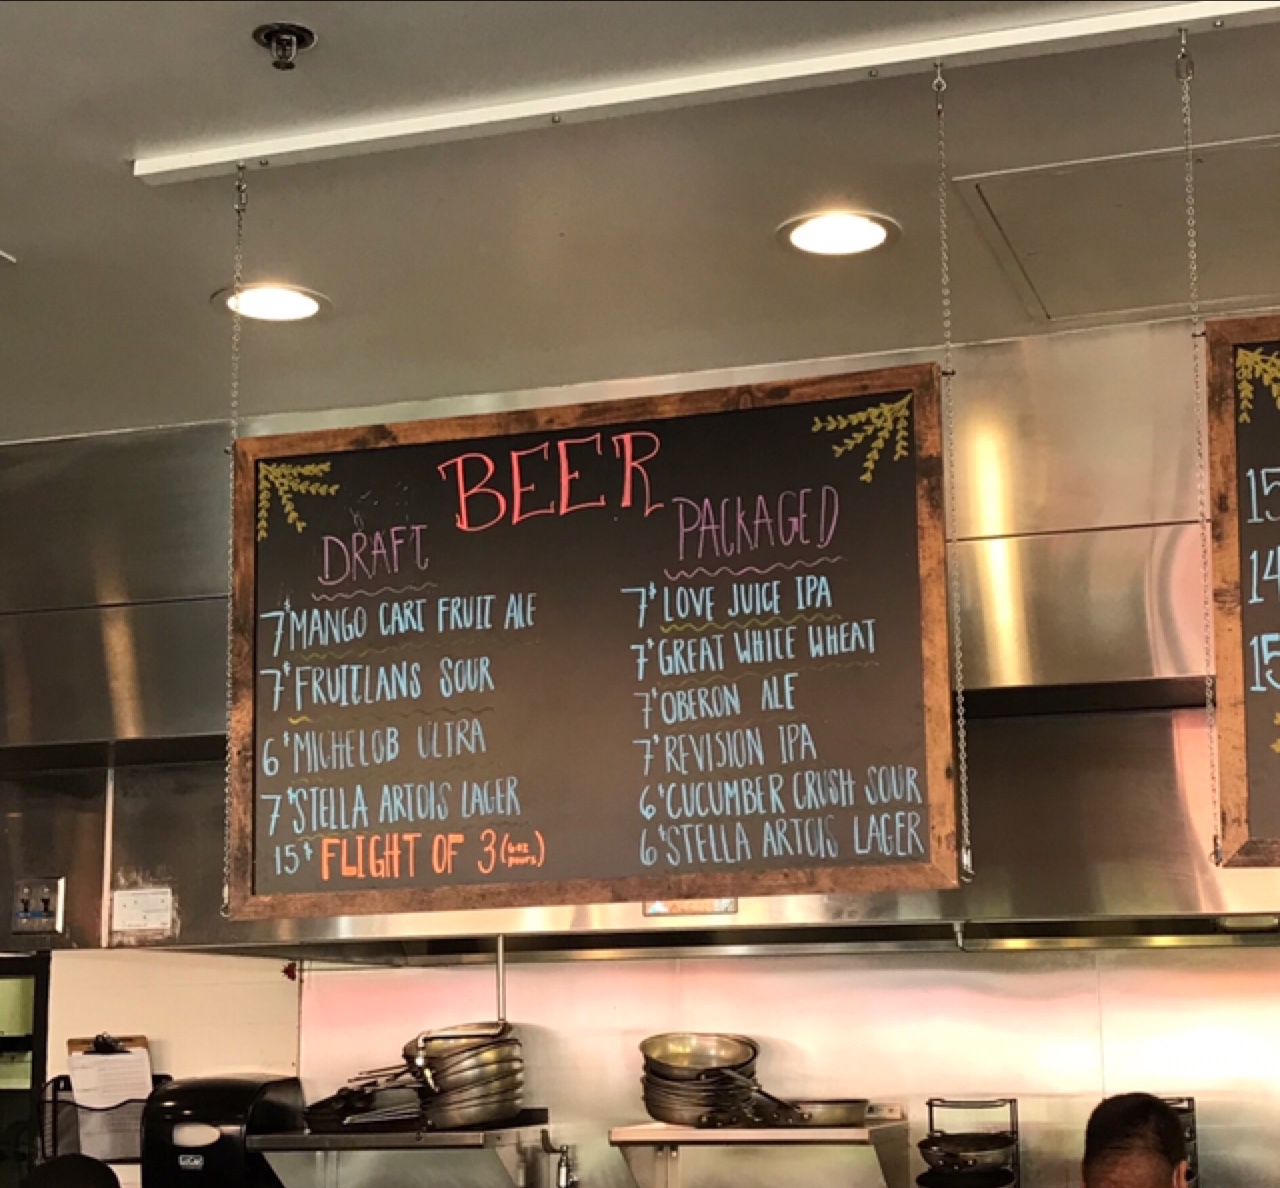 BEER
DRAFT
7$ MANGO CART FRUIT ALE
7$ FRUITLANS SOUR
6$ MICHELOB ULTRA
7$ STELLA ARTOIS LAGER
15$ FLIGHT OF 3 (4oz pours)
PACKAGED
7$ LOVE JUICE IPA
7$ GREAT WHITE WHEAT
7$ OBERON ALE
7$ REVISION IPA
6$ CUCUMBER CRUSH SOUR
6$ STELLA ARTOIS LAGER
15
14
15